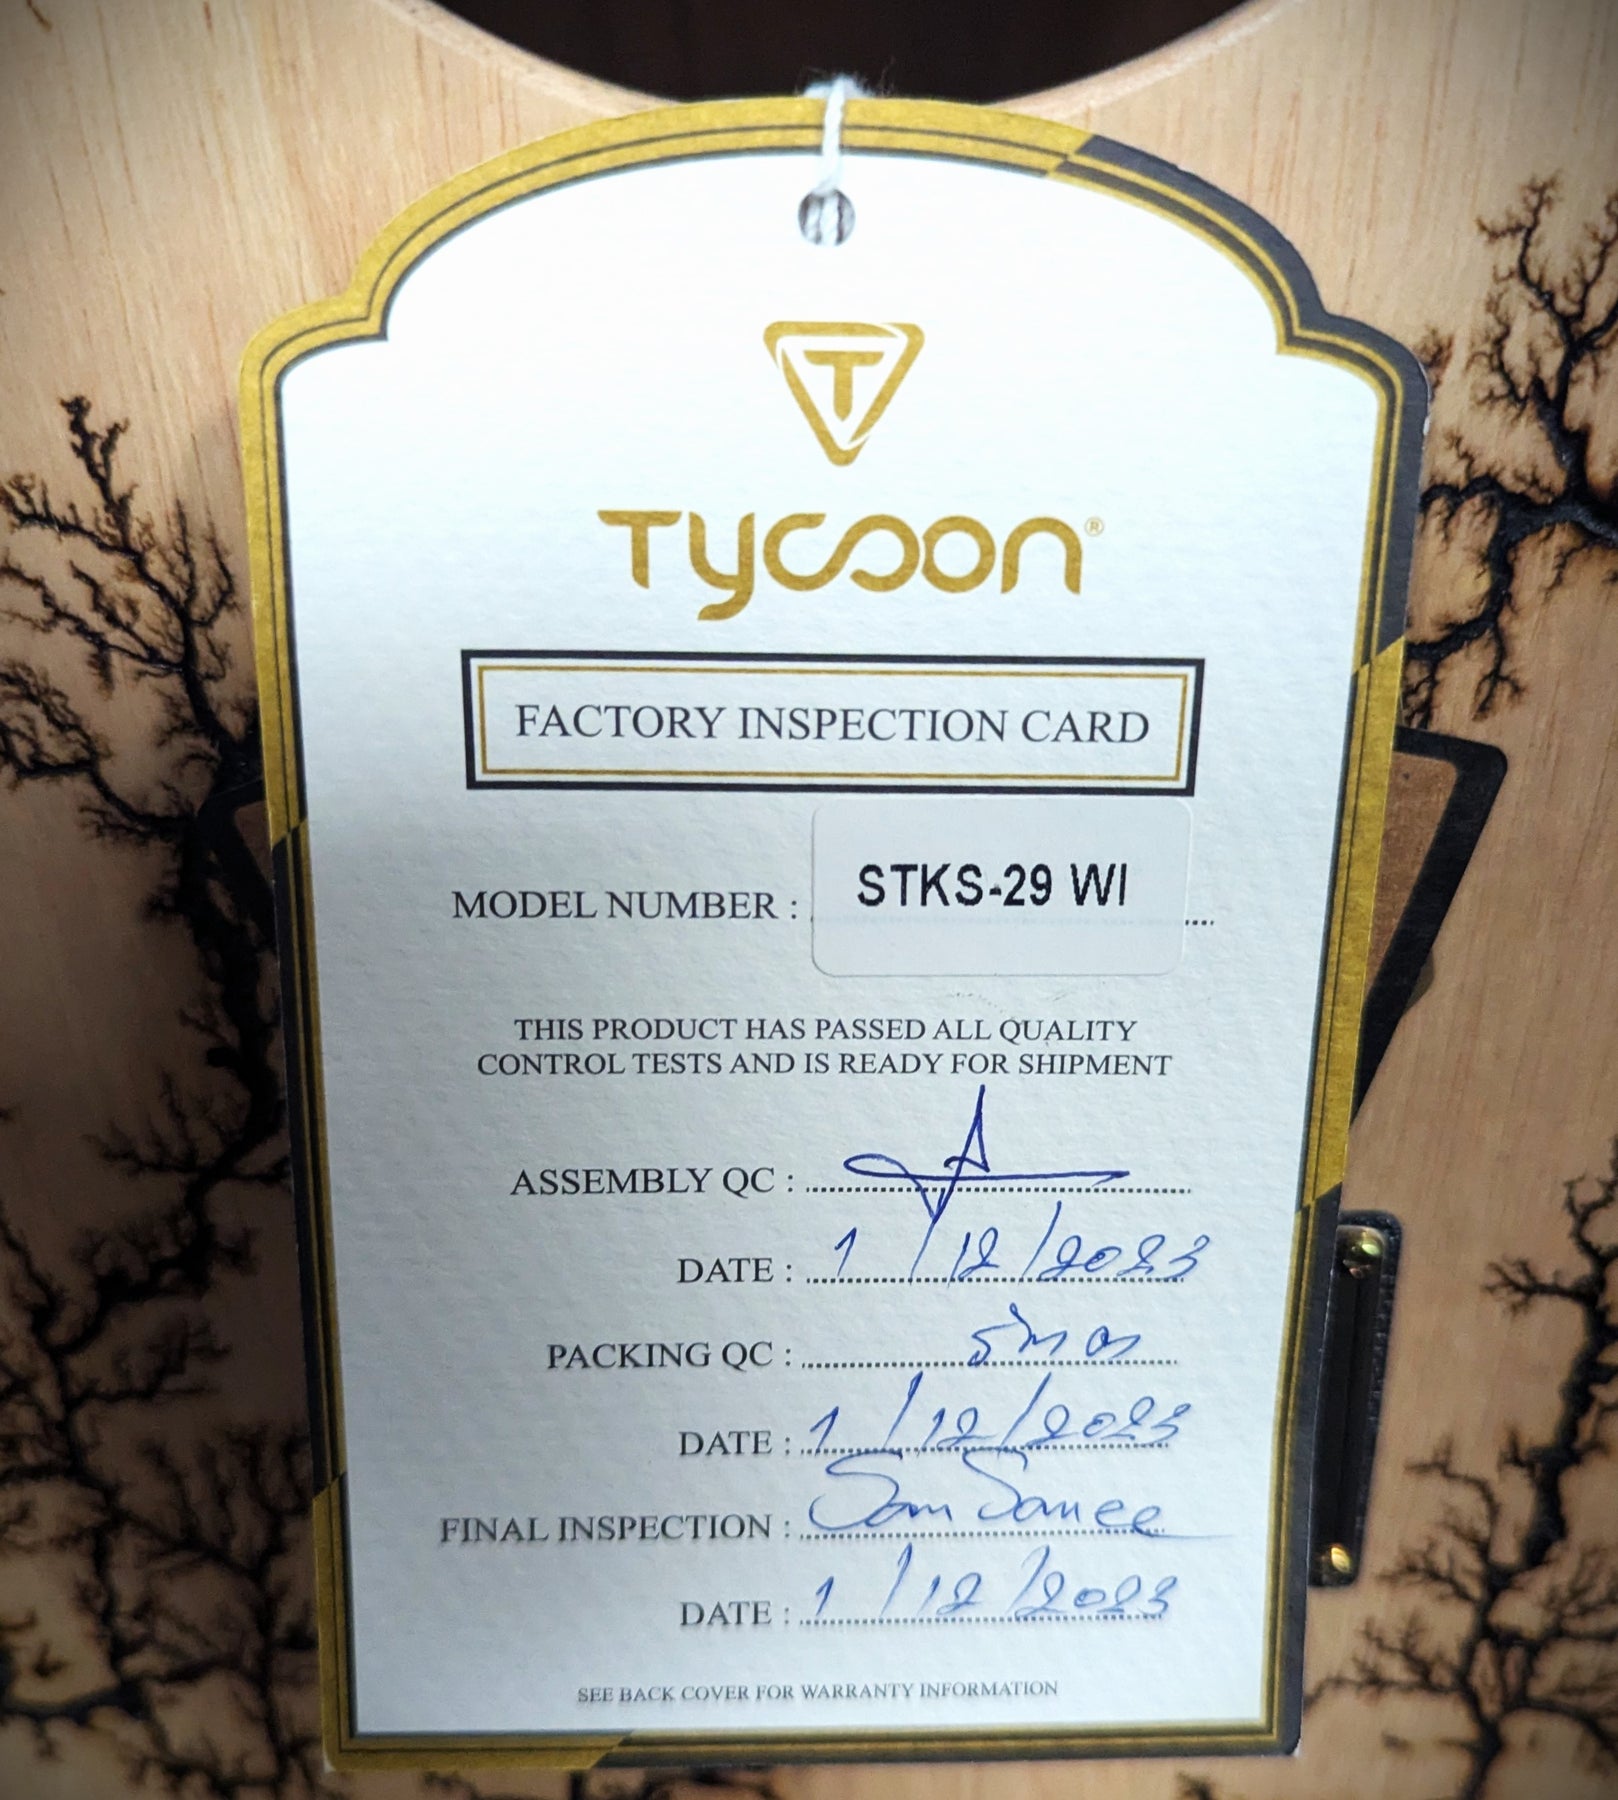 T
TYCOON®
FACTORY INSPECTION CARD
MODEL NUMBER : STKS-29 WI
THIS PRODUCT HAS PASSED ALL QUALITY
CONTROL TESTS AND IS READY FOR SHIPMENT
ASSEMBLY QC :
DATE : 1/12/2023
PACKING QC :
DATE : 1/12/2023
FINAL INSPECTION :
DATE : 1/12/2023
SEE BACK COVER FOR WARRANTY INFORMATION